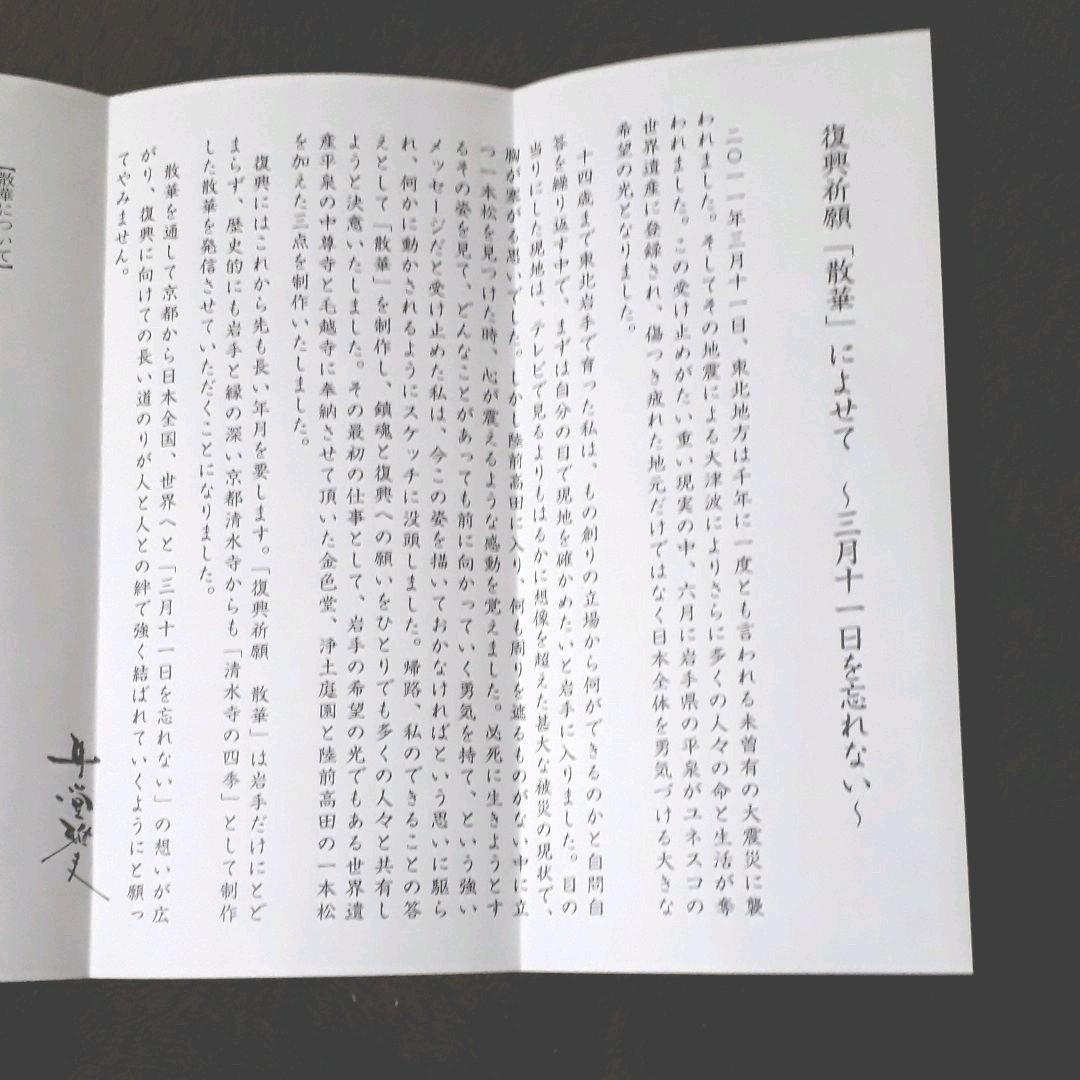 復興祈願「散華」によせて　～三月十一日を忘れない～
二〇一一年三月十一日、東北地方は千年に一度とも言われる未曽有の大震災に襲
われました。そしてその地震による大津波によりさらに多くの人々の命と生活が奪
われました。この受け止めがたい重い現実の中、六月に岩手県の平泉がユネスコの
世界遺産に登録され、傷つき疲れた地元だけではなく日本全体を勇気づける大きな
希望の光となりました。
十四歳まで東北岩手で育った私は、もの創りの立場から何ができるのかと自問自
答を繰り返す中で、まずは自分の目で現地を確かめたいと岩手に入りました。目の
当りにした現地は、テレビで見るよりもはるかに想像を超えた甚大な被災の現状で、
胸が塞がる思いでした。しかし陸前高田に入り、何も周りを遮るものがない中に立
つ一本松を見つけた時、心が震えるような感動を覚えました。必死に生きようとす
るその姿を見て、どんなことがあっても前に向かっていく勇気を持て、という強い
メッセージだと受け止めた私は、今この姿を描いておかなければという思いに駆ら
れ、何かに動かされるようにスケッチに没頭しました。帰路、私のできることの答
えとして「散華」を制作し、鎮魂と復興への願いをひとりでも多くの人々と共有し
ようと決意いたしました。その最初の仕事として、岩手の希望の光でもある世界遺
産平泉の中尊寺と毛越寺に奉納させて頂いた金色堂、浄土庭園と陸前高田の一本松
を加えた三点を制作いたしました。
復興にはこれから先も長い年月を要します。「復興祈願　散華」は岩手だけにとど
まらず、歴史的にも岩手と縁の深い京都清水寺からも「清水寺の四季」として制作
した散華を発信させていただくことになりました。
散華を通して京都から日本全国、世界へと「三月十一日を忘れない」の想いが広
がり、復興に向けての長い道のりが人と人との絆で強く結ばれていくようにと願っ
てやみません。
【散華について】